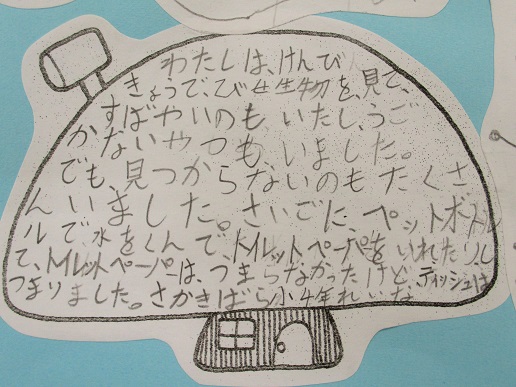 わたしは、けんび
きょうで、び生生物を、見て、
すばやいのも、いたし、うご
かないやつも、いました。
でも、見つからないのもたくさ
んいました。さいごに、ペットボトル
ルで、水をくんで、トイレットペーパーをいれたりし
て、トイレットペーパーは、つまらなかったけど、ティッシュは
つまりました。さかきばら小4年れいな